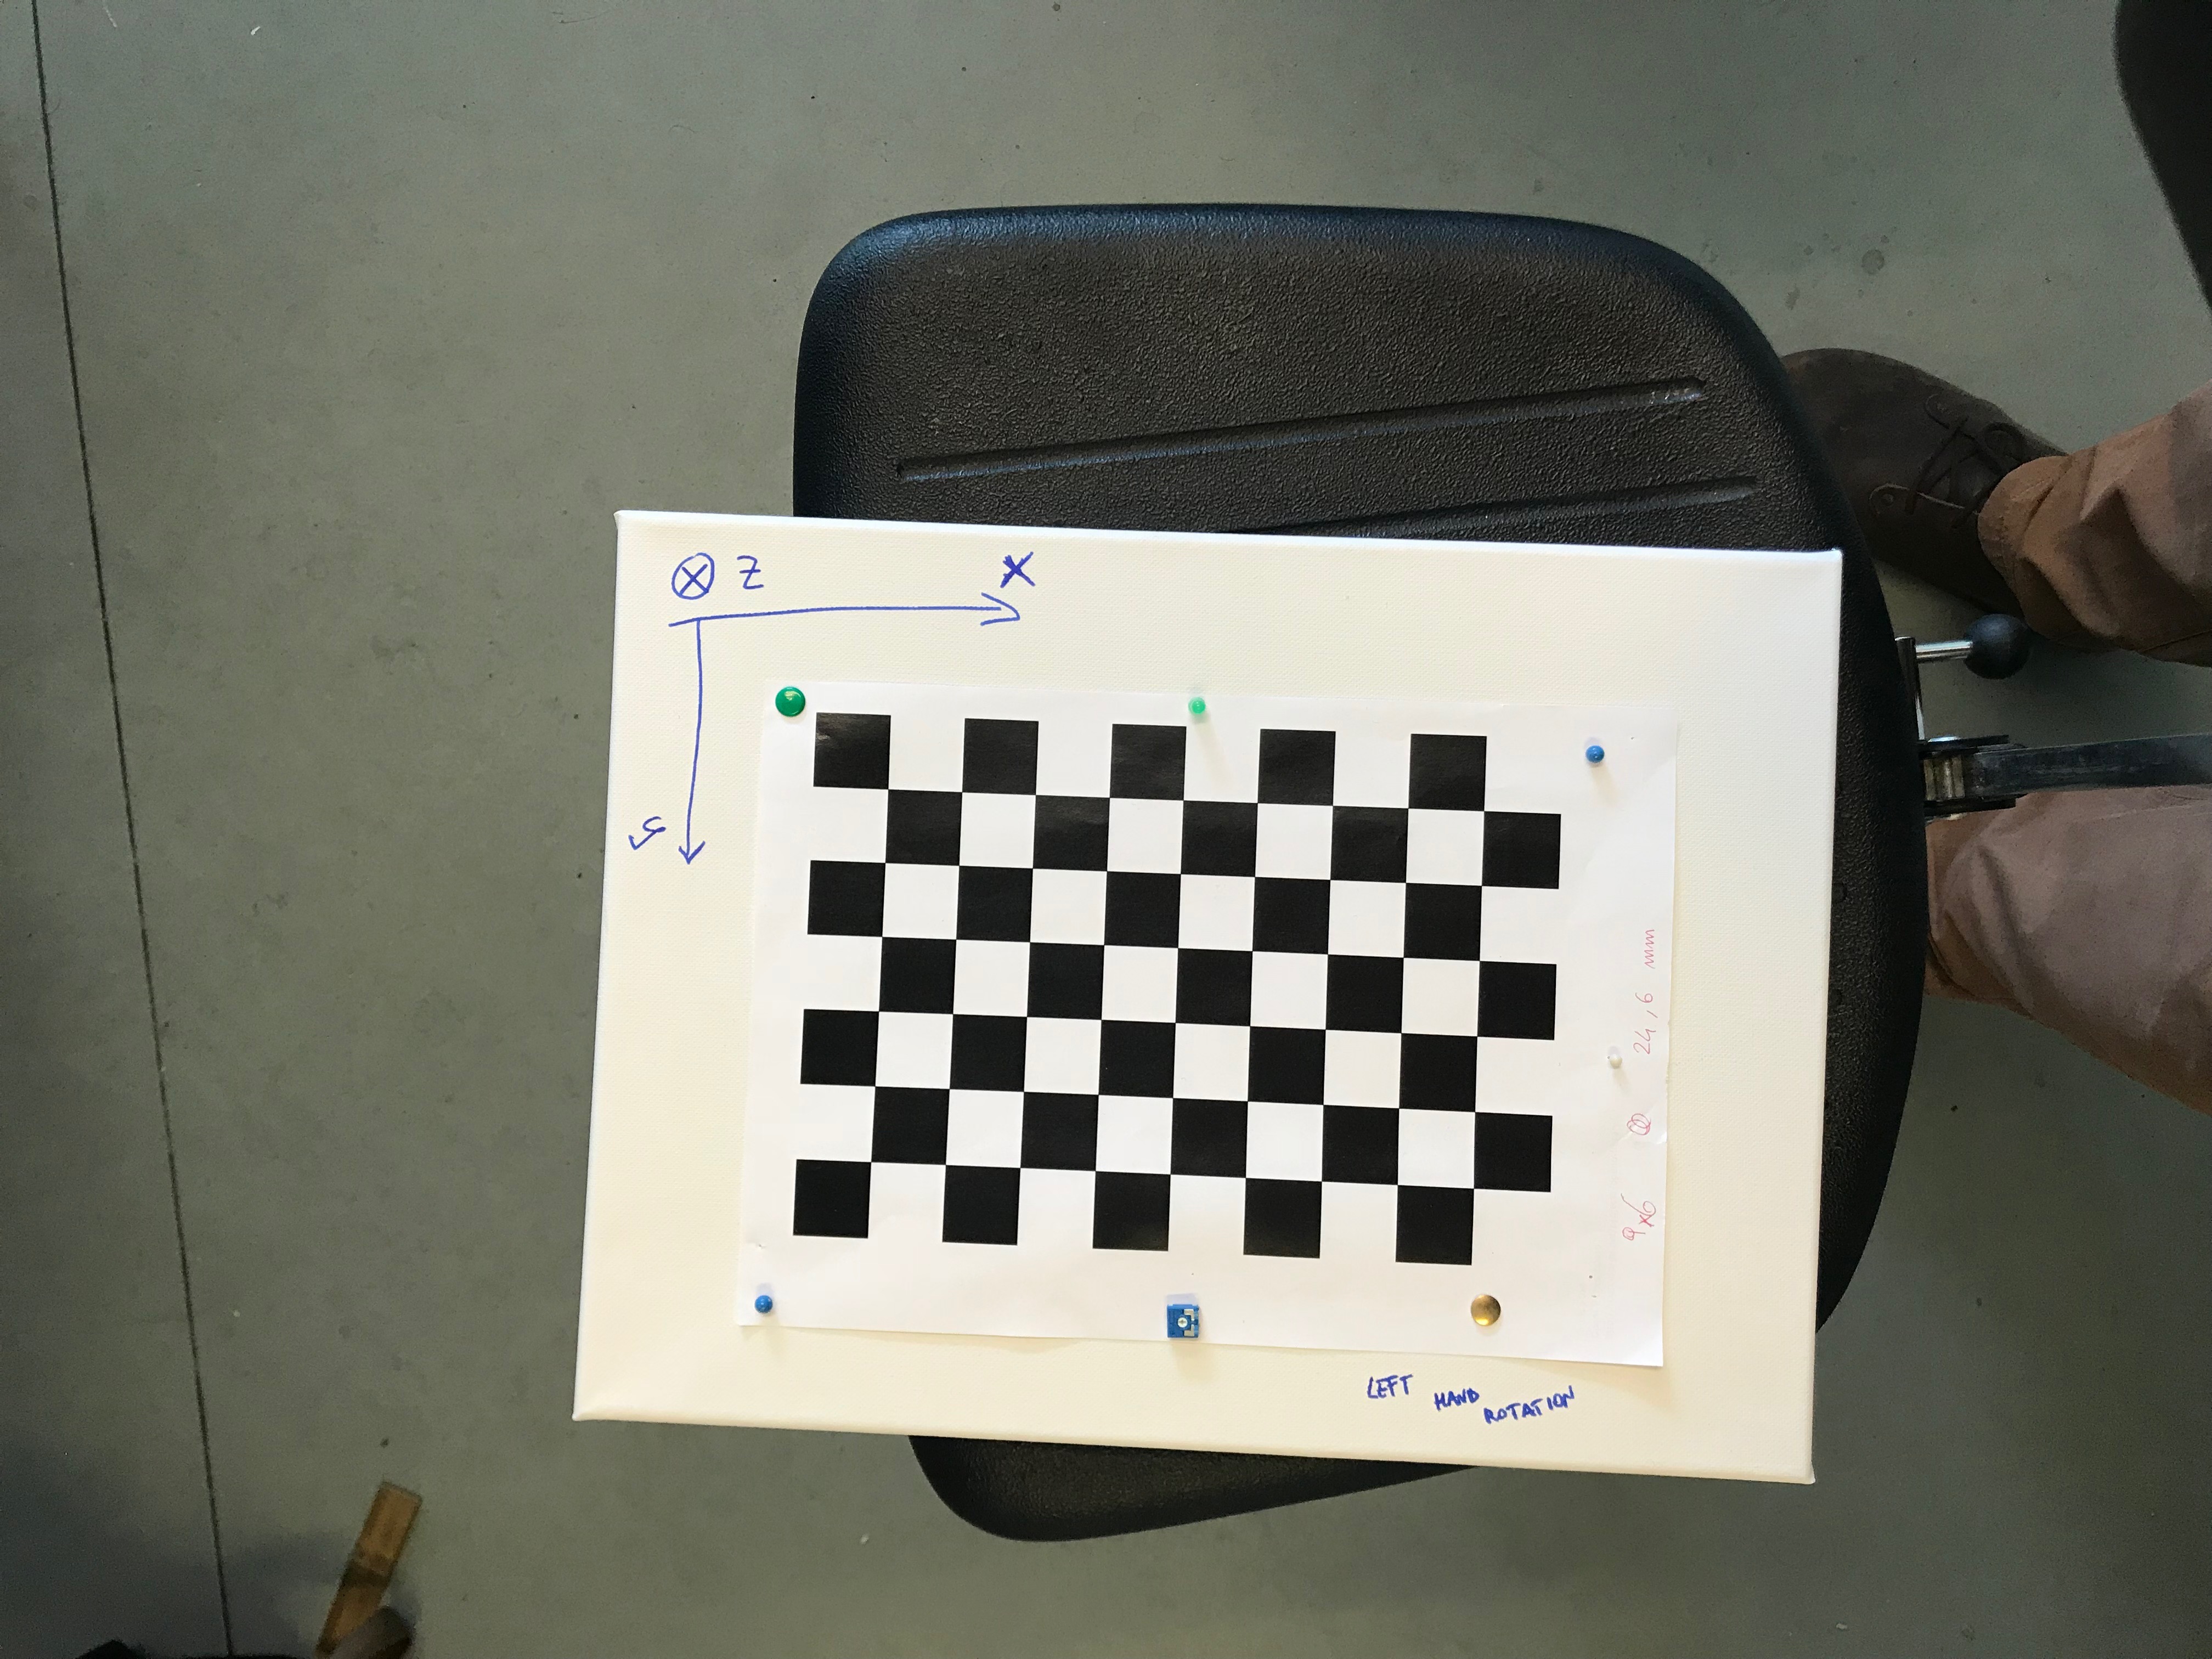 y
z
x
LEFT HAND ROTATION
9x6 @ 24,6 mm